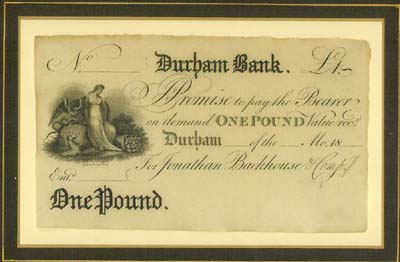 No Durham Bank. £1.-
I Promise to pay the Bearer
on demand ONE POUND Value recd.
Durham of the Mo. 18
For Jonathan Backhouse & Compy.
Entd.
One Pound.